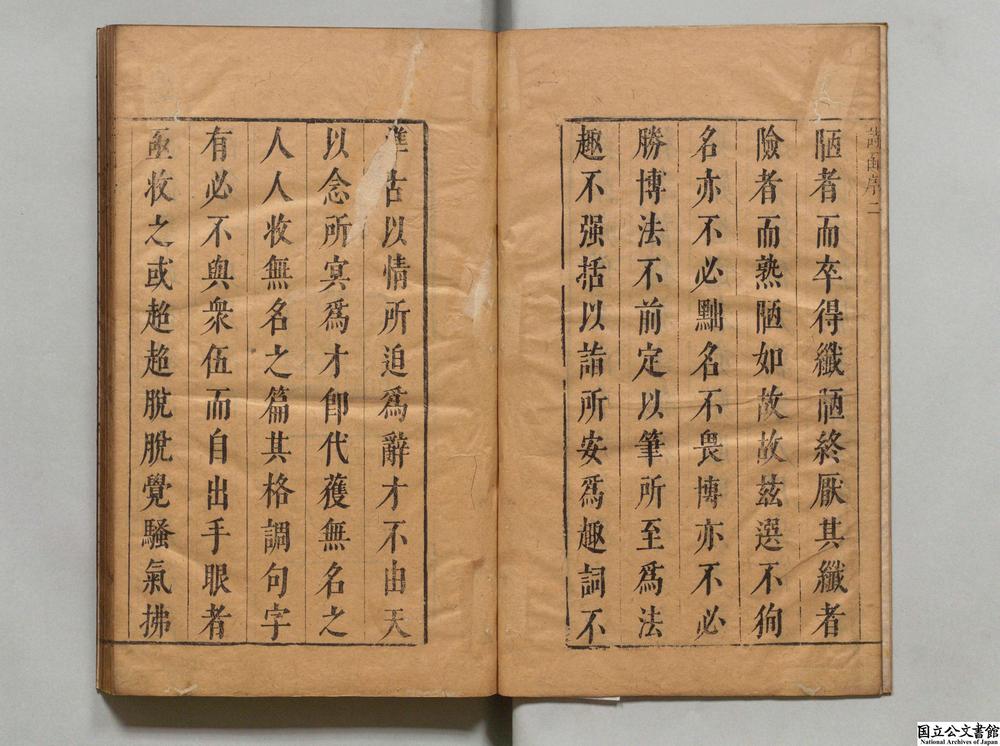 陋者而卒得纖陋終厭其纖者
險者而熟陋如故故茲選不狥
名亦不必黜名不畏博亦不必
勝博法不前定以筆所至爲法
趣不强括以詣所安爲趣詞不
準古以情所迫爲辭才不由天
以念所㝠爲才卽代獲無名之
人人收無名之篇其格調句字
有必不與衆伍而自出手眼者
亟收之或超超脫脫覺騷氣拂
國立公文書館
National Archives of Japan